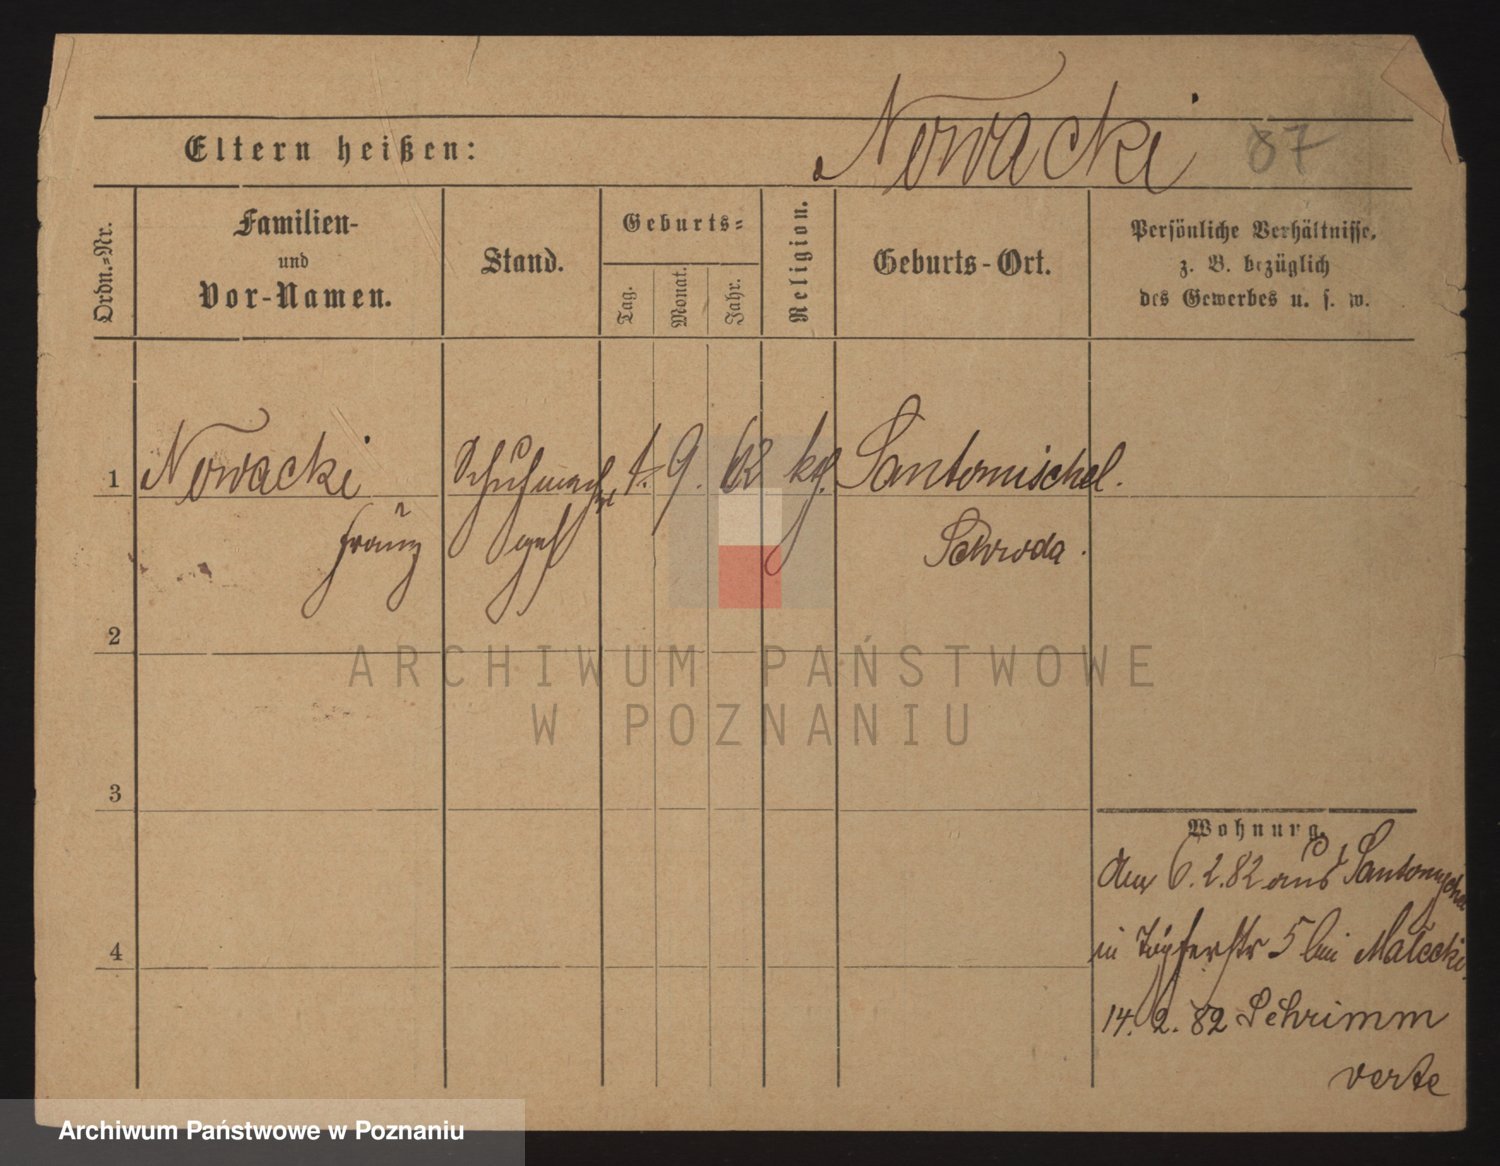 Nowacki 87
Eltern heißen:
Ordn.=Nr.
Familien-
und
Vor-Namen.
Stand.
Geburts=
Tag.
Monat.
Jahr.
Religion.
Geburts-Ort.
Persönliche Verhältnisse,
z. B. bezüglich
des Gewerbes u. s. w.
1 Nowacki Schuhmacher 1. 9. 62 kth. Santomischel.
Franz ges Schroda.
2
3
4
Wohnung.
Am 6.2.82 aus Santomyschel
in Töpferstr 5 bei Malecki.
14.2.82 Schrimm
verte
ARCHIWUM PAŃSTWOWE
W POZNANIU
Archiwum Państwowe w Poznaniu